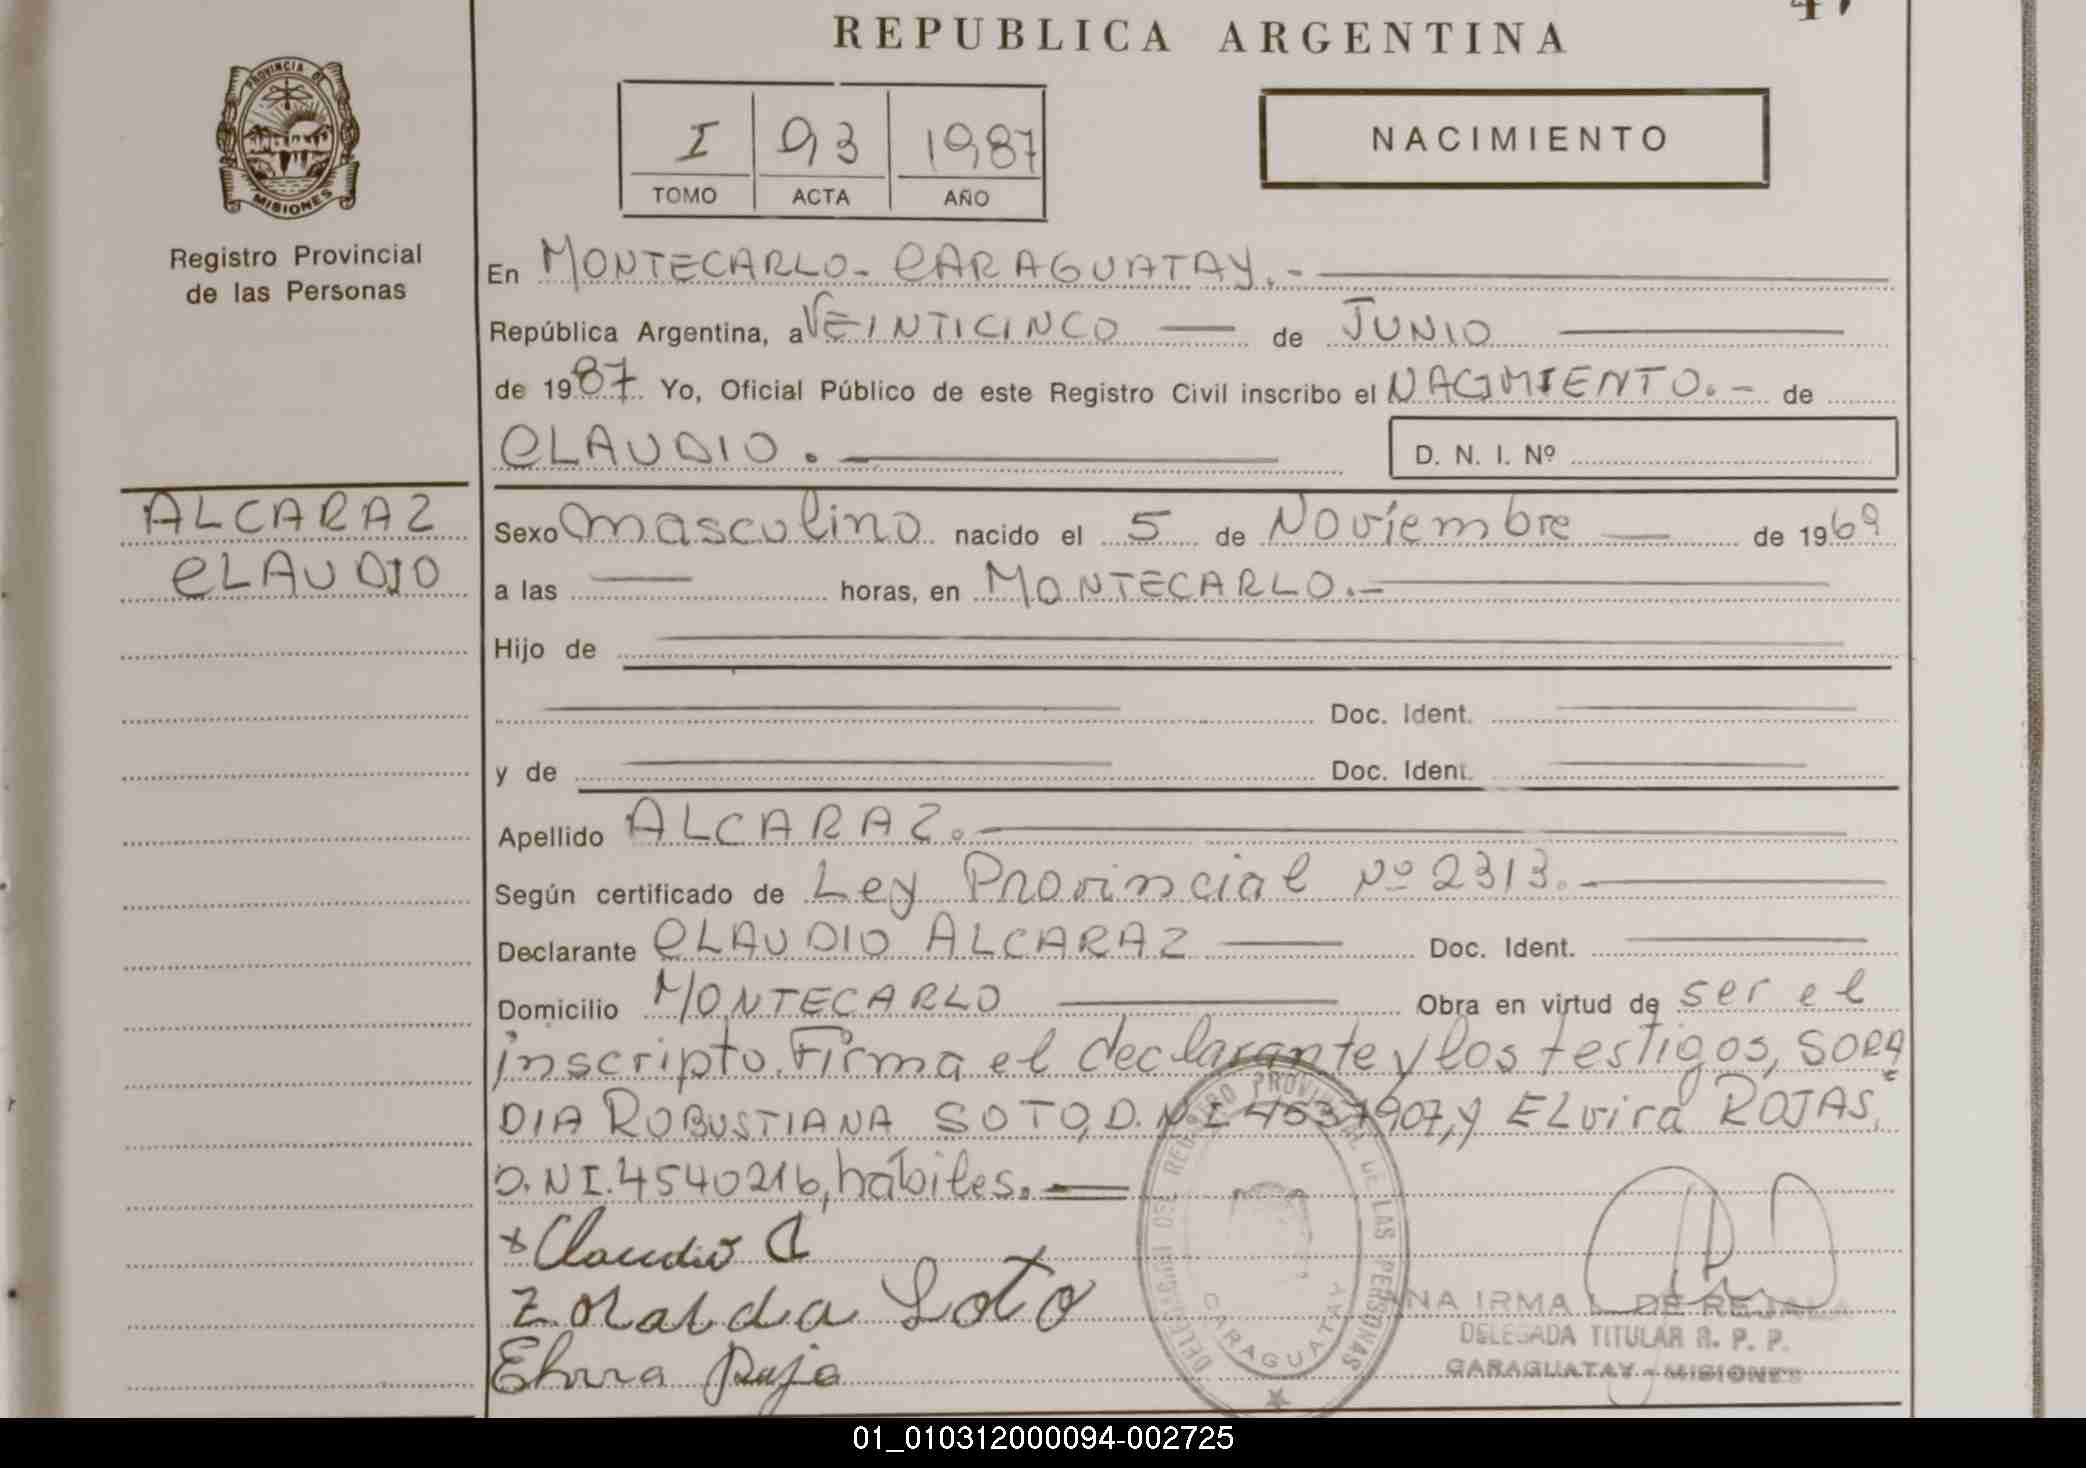 REPUBLICA ARGENTINA
PROVINCIA DE
MISIONES
Registro Provincial
de las Personas
I 93 1987
TOMO ACTA AÑO
NACIMIENTO
En MONTECARLO- CARAGUATAY.-
República Argentina, a VEINTICINCO de JUNIO
de 1987. Yo, Oficial Público de este Registro Civil inscribo el NACIMIENTO.- de
CLAUDIO. D. N. I. Nº
ALCARAZ
CLAUDIO
Sexo masculino nacido el 5 de Noviembre de 1969
a las horas, en MONTECARLO.-
Hijo de
Doc. Ident.
y de Doc. Ident.
Apellido ALCARAZ.
Según certificado de Ley Provincial Nº 2313.
Declarante CLAUDIO ALCARAZ Doc. Ident.
Domicilio MONTECARLO Obra en virtud de ser el
inscripto. Firma el declarante y los testigos, SORA
DIA ROBUSTIANA SOTO, D.N.I 4537907, y ELvira ROJAS,
D.NI.4540216, hábiles.
x Claudio A
Zoraida Soto
Elvira Roja
DELEGACION DEL REGISTRO PROVINCIAL DE LAS PERSONAS
CARAGUATAY
IRMA L. DE
DELEGADA TITULAR R. P. P.
CARAGUATAY - MISIONES
01_010312000094-002725